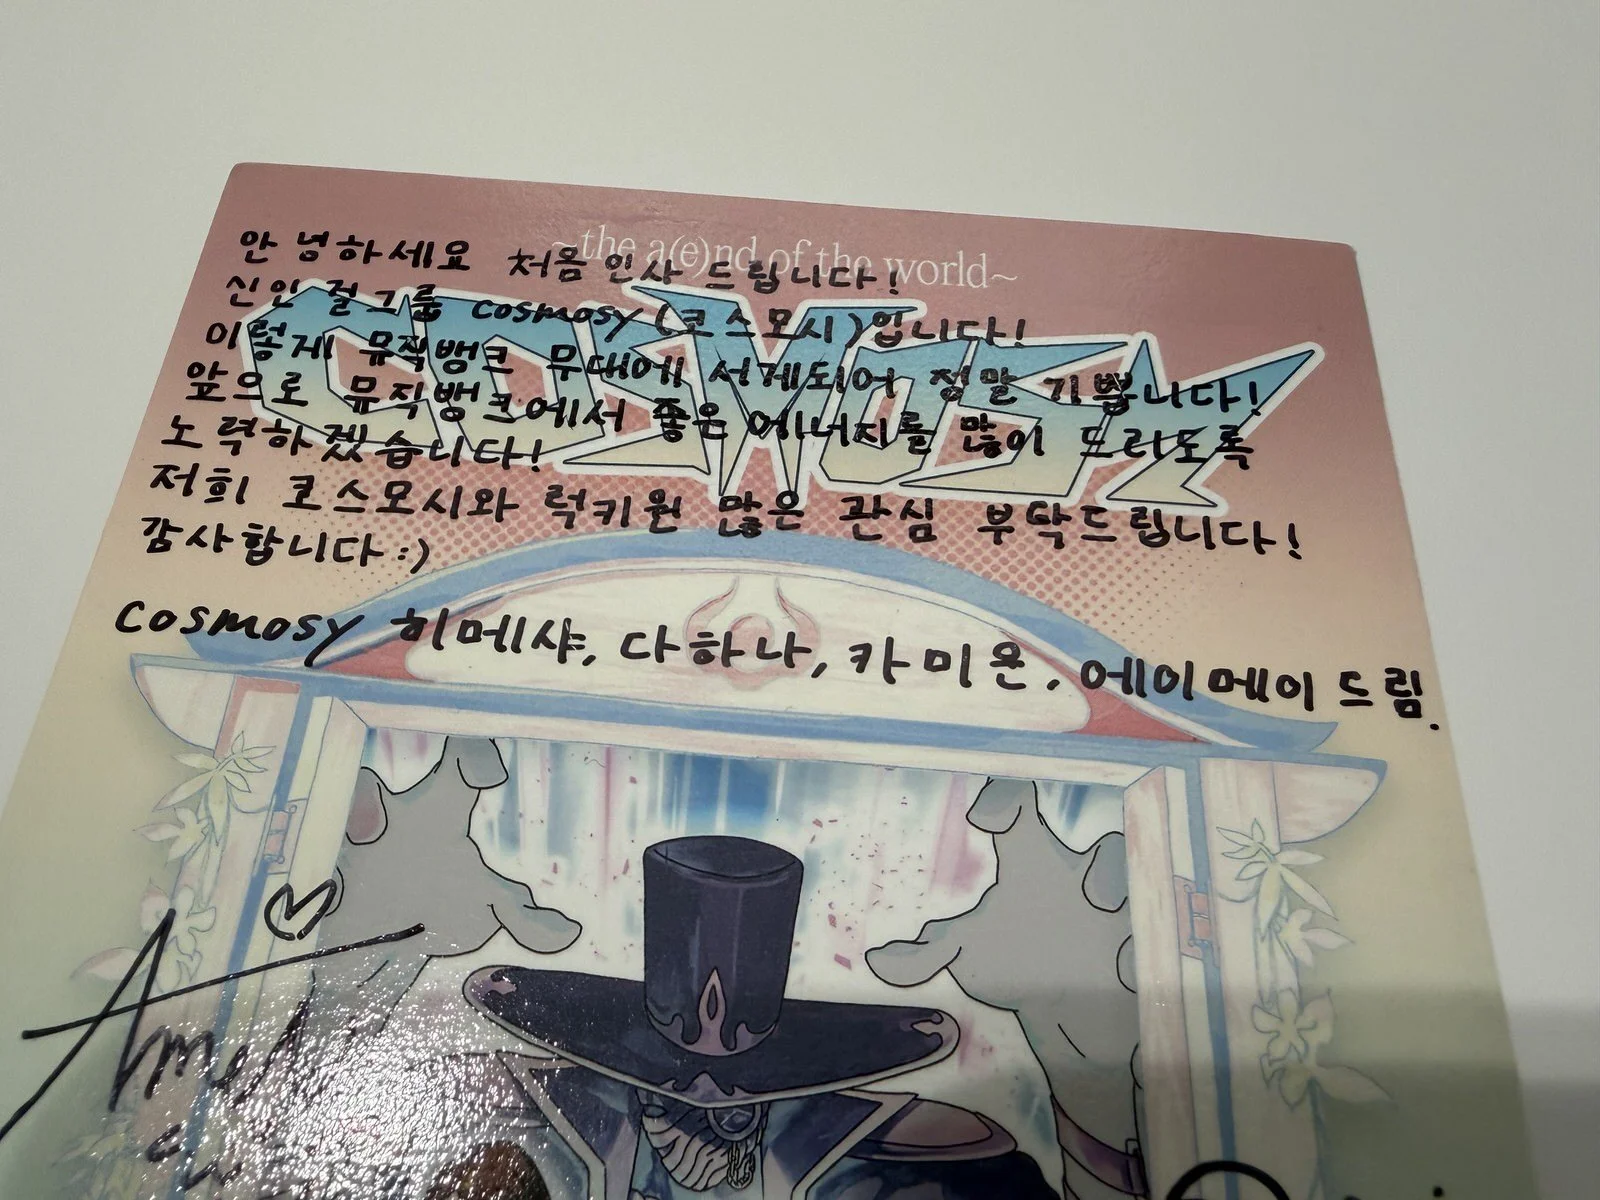 ~the a(e)nd of the world~
COSMOSY
안녕하세요 처음 인사 드립니다!
신인 걸그룹 cosmosy(코스모시)입니다!
이렇게 뮤직뱅크 무대에 서게되어 정말 기쁩니다!
앞으로 뮤직뱅크에서 좋은 에너지를 많이 드리도록
노력하겠습니다!
저희 코스모시와 럭키원 많은 관심 부탁드립니다!
감사합니다:)
cosmosy 히메샤, 다하나, 카미온, 에이메이 드림.